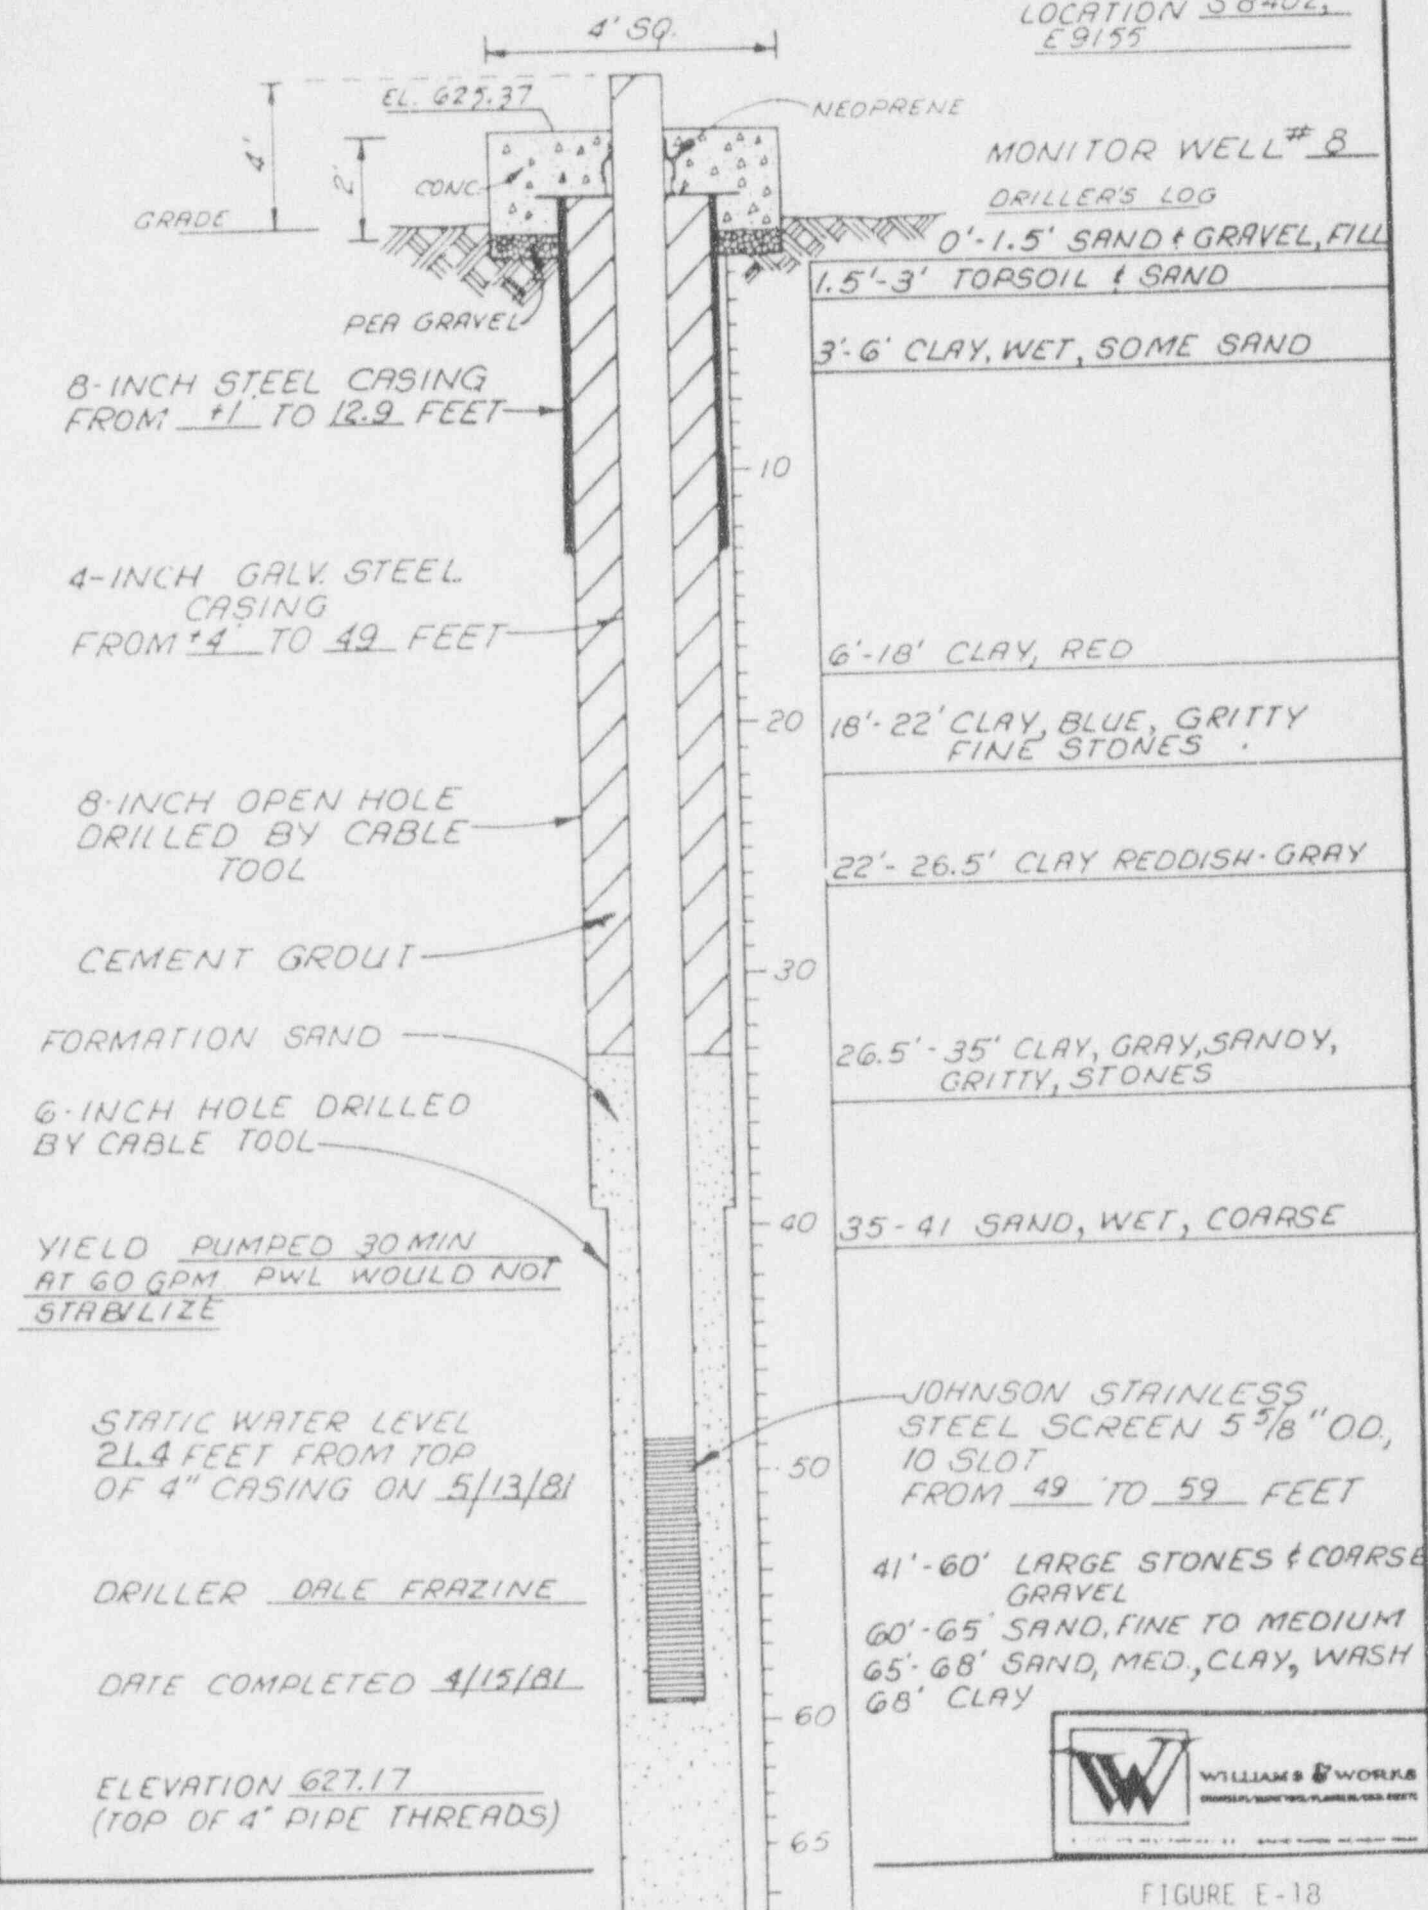 LOCATION S 8402,
E 9155
4' SQ.
EL. 625.37
NEOPRENE
4'
2'
CONC.
GRADE
PEA GRAVEL
MONITOR WELL # 8
DRILLER'S LOG
0'-1.5' SAND & GRAVEL, FILL
1.5'-3' TOPSOIL & SAND
3'-6' CLAY, WET, SOME SAND
8-INCH STEEL CASING
FROM +1 TO 12.9 FEET
10
4-INCH GALV. STEEL
CASING
FROM +4 TO 49 FEET
6'-18' CLAY, RED
20
18'-22' CLAY, BLUE, GRITTY
FINE STONES
8-INCH OPEN HOLE
DRILLED BY CABLE
TOOL
22'-26.5' CLAY REDDISH-GRAY
CEMENT GROUT
30
FORMATION SAND
26.5'-35' CLAY, GRAY, SANDY,
GRITTY, STONES
6-INCH HOLE DRILLED
BY CABLE TOOL
40
35-41 SAND, WET, COARSE
YIELD PUMPED 30 MIN
AT 60 GPM PWL WOULD NOT
STABILIZE
JOHNSON STAINLESS
STEEL SCREEN 5 5/8" OD.,
10 SLOT
FROM 49 TO 59 FEET
50
STATIC WATER LEVEL
21.4 FEET FROM TOP
OF 4" CASING ON 5/13/81
41'-60' LARGE STONES & COARSE
GRAVEL
60'-65' SAND, FINE TO MEDIUM
65'-68' SAND, MED., CLAY, WASH
68' CLAY
DRILLER DALE FRAZINE
DATE COMPLETED 4/15/81
60
ELEVATION 627.17
(TOP OF 4" PIPE THREADS)
65
W
WILLIAMS & WORKS
FIGURE E-18